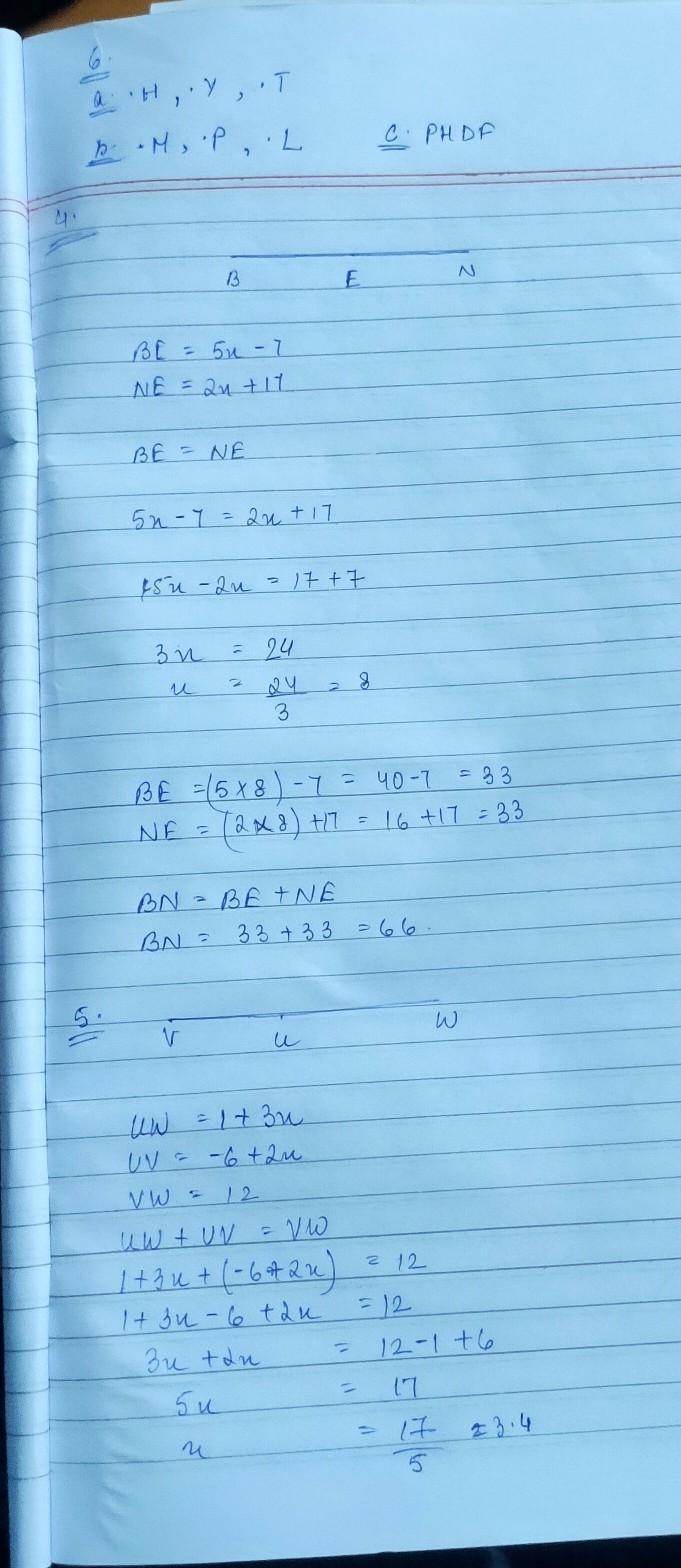 6.
a. ·H, ·Y, ·T
b. ·M, ·P, ·L c. PHDF
4.
B E N
BE = 5x - 7
NE = 2x + 17
BE = NE
5x - 7 = 2x + 17
5x - 2x = 17 + 7
3x = 24
x = 24/3 = 8
BE = (5 x 8) - 7 = 40 - 7 = 33
NE = (2 x 8) + 17 = 16 + 17 = 33
BN = BE + NE
BN = 33 + 33 = 66.
5.
V U W
UW = 1 + 3x
UV = -6 + 2x
VW = 12
UW + UV = VW
1 + 3x + (-6 + 2x) = 12
1 + 3x - 6 + 2x = 12
3x + 2x = 12 - 1 + 6
5x = 17
x = 17/5 = 3.4